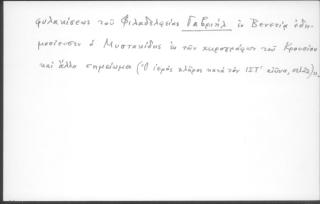 φυλακίσεως τοῦ Φιλαδελφείας Γαβριήλ ἐν Βενετίᾳ ἐδη-
μοσίευσεν ὁ Μυστακίδης ἐκ τῶν χειρογράφων τοῦ Κρουσίου
καὶ ἄλλο σημείωμα (Ὁ ἱερὸς κλῆρος κατὰ τὸν ΙΣΤ' αἰῶνα,